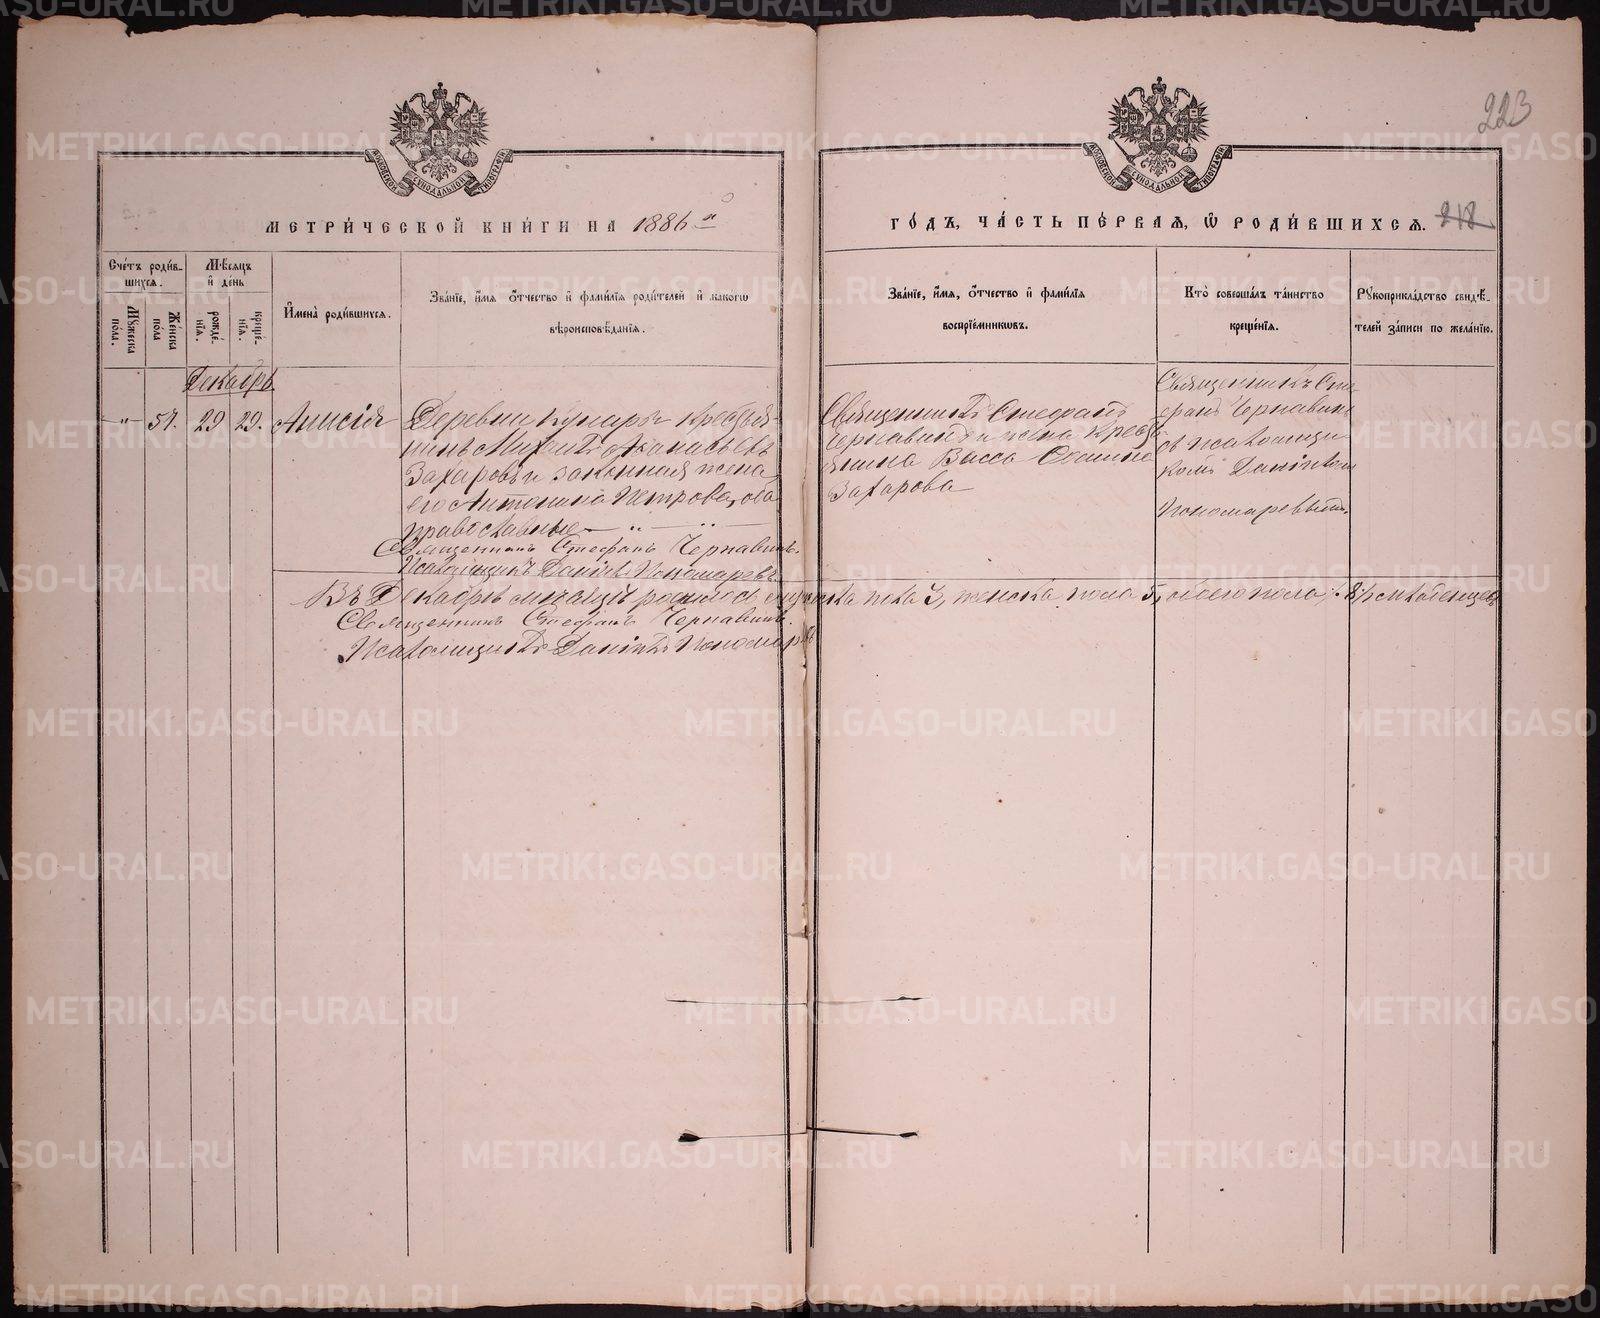 METRIKI.GASO-URAL.RU
223
МОСКОВСКОЙ СѴНОДАЛЬНОЙ ТИПОГРАФІИ
МОСКОВСКОЙ СѴНОДАЛЬНОЙ ТИПОГРАФІИ
МЕТРИ́ЧЕСКОЙ КНИ́ГИ НА 1886 й
ГО́ДЪ, ЧА́СТЬ ПЕ́РВАЯ, Ѿ РОДИ́ВШИХСЯ. 218
Сче́тъ роди́в-
шихся.
Му́жеска по́ла.
Же́нска по́ла
Мѣ́сяцъ
и҆ де́нь
рожде́-
нїя.
креще́-
нїя.
И҆мена̀ роди́вшихся.
Зва́нїе, и҆́мя ѻ҆́тчество и҆ фами́лїя роди́телей и҆ како́гѡ
вѣроисповѣ́данїя.
Зва́нїе, и҆́мя, ѻ҆́тчество и҆ фами́лїя
воспрїе́мникѡвъ.
Кто̀ соверша́лъ та́инство
креще́нїя.
Рꙋкоприкла́дство свидѣ́-
телей за́писи по жела́нїю.
Декабрь
„ 51. 29 29. Анисія
Деревни Кунары крестья-
нинъ Михаилъ Аѳанасьевъ
Захаровъ и законная жена
его Антонина Петрова, оба
православные
Священникъ Стефанъ Чернавинъ.
Псаломщикъ Даніилъ Пономаревъ
Священникъ Стефанъ
Чернавинъ и жена кресть-
янина Васса
Захарова
Священникъ Сте-
фанъ Чернавинъ
съ псаломщи-
комъ Даніиломъ
Пономаревымъ.
Въ Декабрѣ мѣсяцѣ родилось мужеска пола 3, женска пола 5, обоего пола 8 младенцевъ
Священникъ Стефанъ Чернавинъ.
Псаломщикъ Даніилъ Пономаревъ